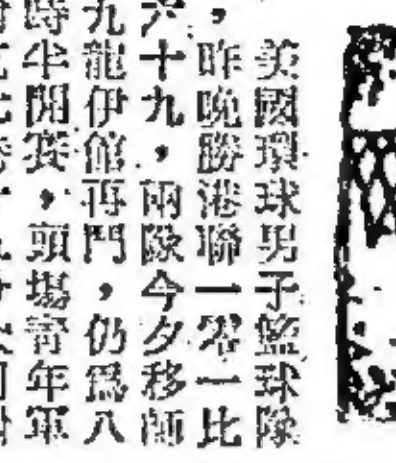 美國環球男子籃球隊
，昨晚勝港聯一零一比
六十九，兩隊今夕移師
九龍伊館再鬥，仍爲八
時半開賽，頭場青年軍